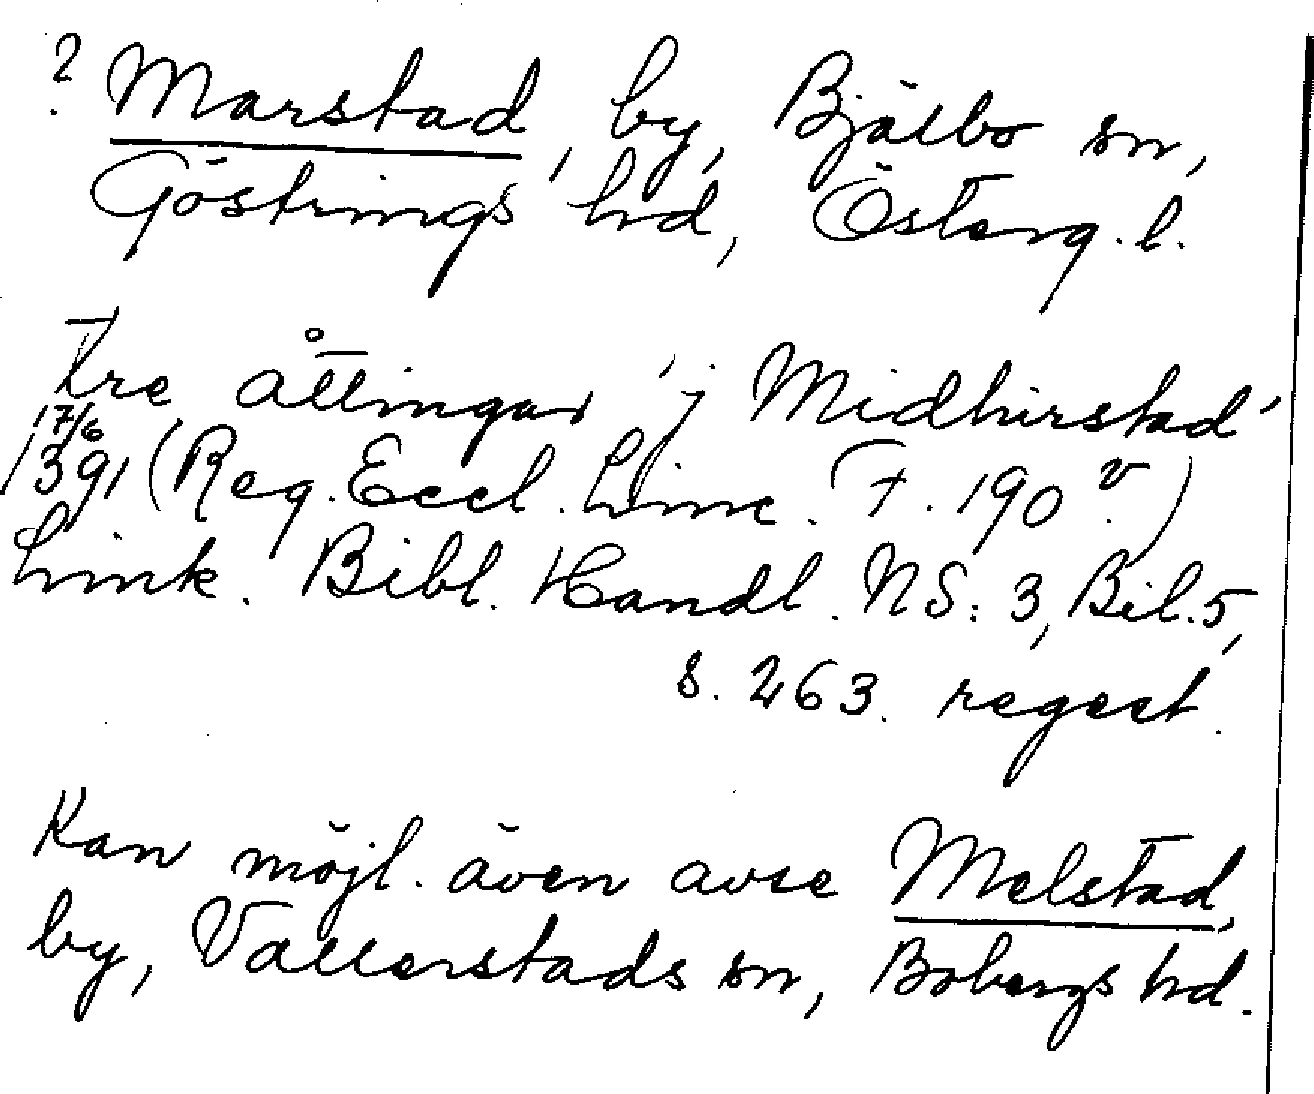 ? Marstad, by, Bjälbo sn,
Göstrings hd, Österg. l.
tre åttingar 'j Midhirstad'
17/6
1391 (Reg. Eccl. Linc. F. 190 v.)
Link. Bibl. Handl. NS: 3, Bil. 5,
s. 263. regest.
Kan möjl. även avse Melstad,
by, Vallerstads sn, Bobergs hd.